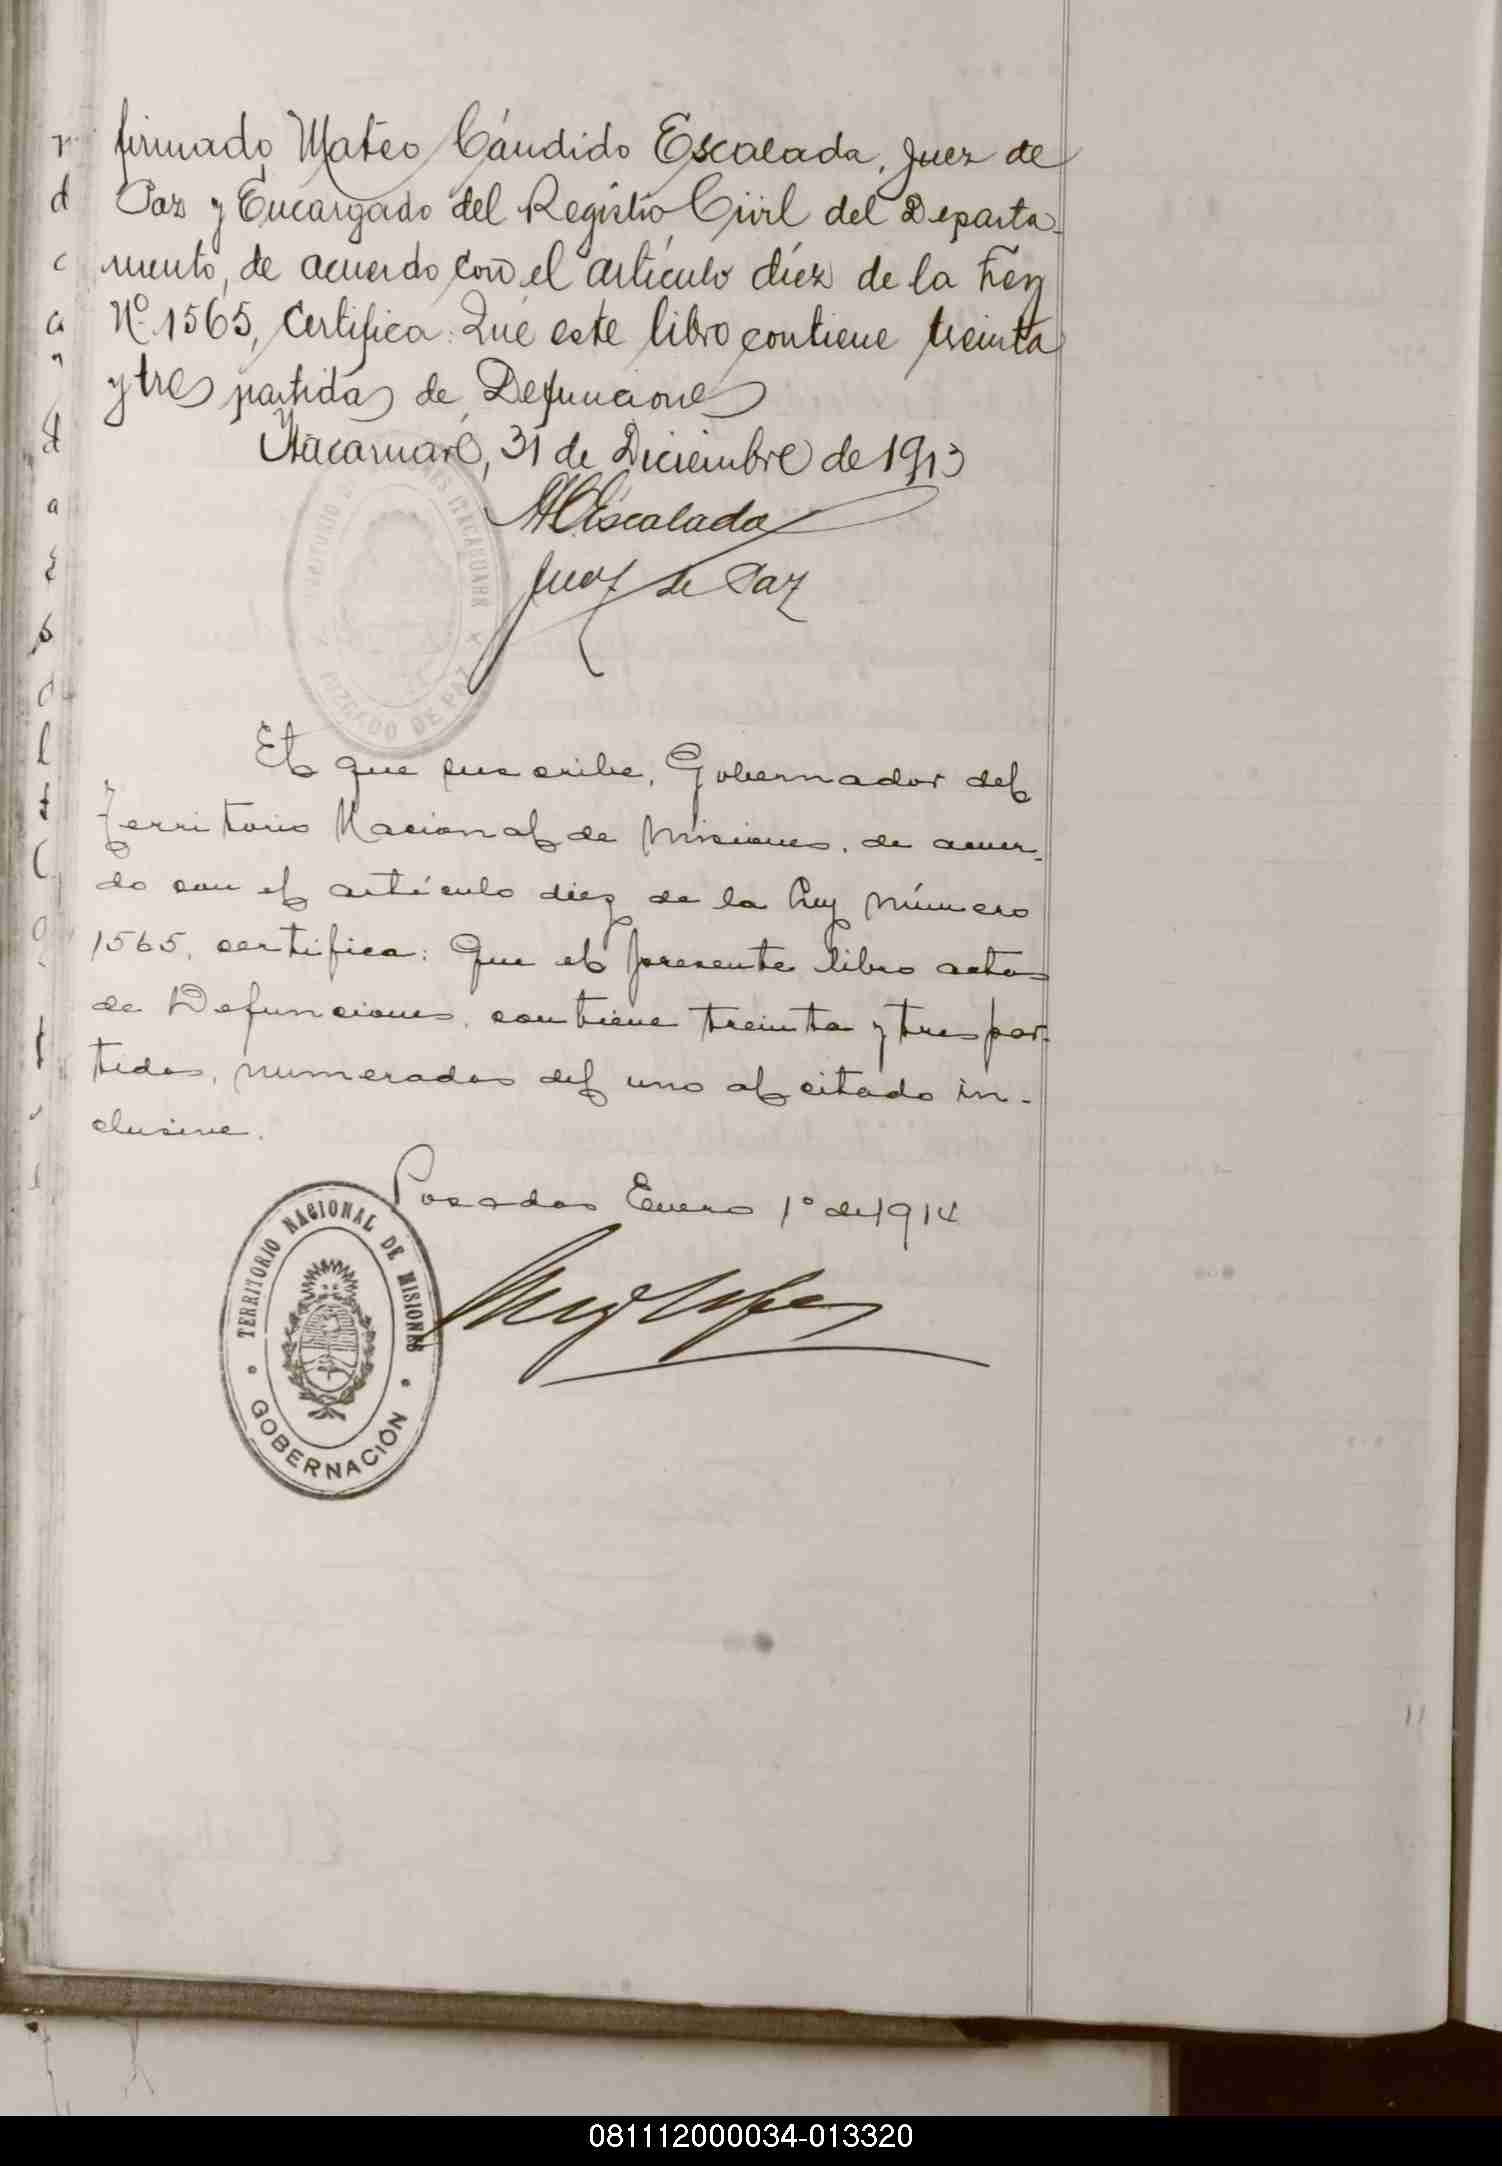 firmado, Mateo Cándido Escalada, Juez de
Paz y Encargado del Registro Civil del Departa-
mento, de acuerdo con el artículo diez de la Ley
Nº 1565, Certifica: Que este libro contiene treinta
y tres partidas de Defunciones
Itacaruaré, 31 de Diciembre de 1913
M C Escalada
Juez de Paz
ITACARUARE
JUZGADO DE PAZ
El que suscribe, Gobernador del
Territorio Nacional de Misiones, de acuer-
do con el artículo diez de la Ley número
1565, certifica: Que el presente libro actas
de Defunciones, contiene treinta y tres par-
tidas, numeradas del uno al citado in-
clusive.
Posadas Enero 1º de 1914
TERRITORIO NACIONAL DE MISIONES
GOBERNACIÓN
081112000034-013320